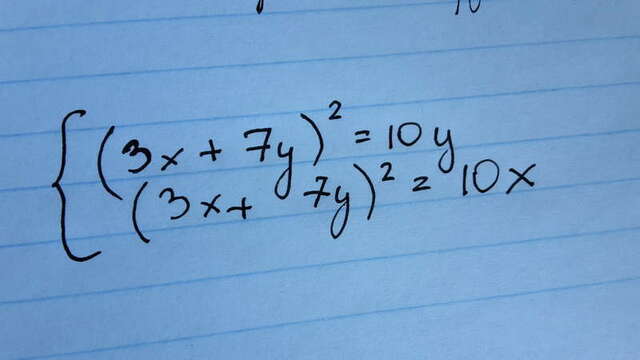 (3x + 7y)² = 10y
(3x + 7y)² = 10x